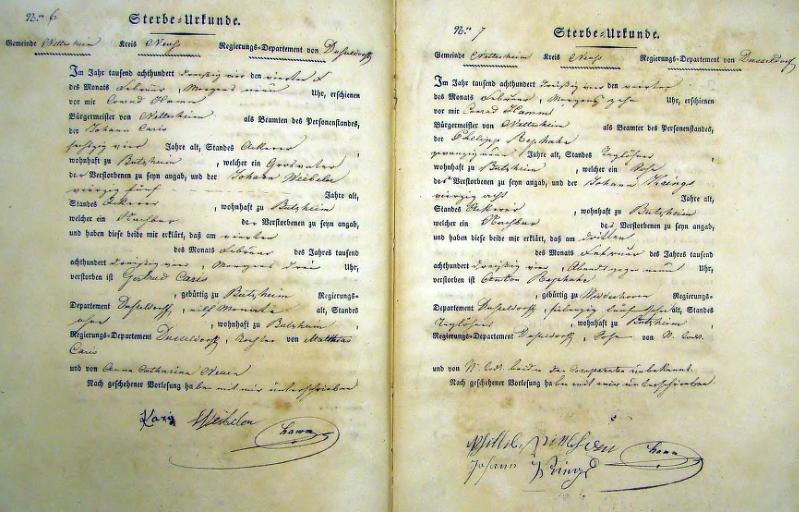 N.ro 6
Sterbe-Urkunde.
Gemeinde Nettesheim Kreis Neuss Regierungs-Departement von Düsseldorff
Im Jahr tausend achthundert dreißig vier den vierten
des Monats Februar, Morgens neun Uhr, erschienen
vor mir Conrad Hamm
Bürgermeister von Nettesheim als Beamten des Personenstandes,
der Johann Caris
sechszig vier Jahre alt, Standes Ackerer
wohnhaft zu Butzheim, welcher ein Großvater
der Verstorbenen zu seyn angab, und der Johann Weibelen
vierzig fünf Jahre alt,
Standes Ackerer, wohnhaft zu Butzheim
welcher ein Nachbar der Verstorbenen zu seyn angab,
und haben diese beide mir erklärt, daß am vierten
des Monats Februar des Jahres tausend
achthundert dreißig vier, Morgens drei Uhr,
verstorben ist Gertrud Caris
, gebürtig zu Butzheim Regierungs-
Departement Düsseldorff, Monate alt, Standes
ohne, wohnhaft zu Butzheim,
Regierungs-Departement Düsseldorff, Tochter von Mathias
Caris
und von Anna Catharina
Nach geschehener Vorlesung haben mit mir unterschrieben
Karis Weibelen Hamm
N.ro 7
Sterbe-Urkunde.
Gemeinde Nettesheim Kreis Neuss Regierungs-Departement von Düsseldorf
Im Jahr tausend achthundert dreißig vier den vierten
des Monats Februar, Morgens zehn Uhr, erschienen
vor mir Conrad Hamm
Bürgermeister von Nettesheim als Beamten des Personenstandes,
der Philipp
zwanzig neun Jahre alt, Standes Taglöhner
wohnhaft zu Butzheim, welcher ein Sohn
des Verstorbenen zu seyn angab, und der Johann
vierzig acht Jahre alt,
Standes Ackerer, wohnhaft zu Butzheim
welcher ein Nachbar des Verstorbenen zu seyn angab,
und haben diese beide mir erklärt, daß am dritten
des Monats Februar des Jahres tausend
achthundert dreißig vier, Abends neun Uhr,
verstorben ist Anton
, gebürtig zu Regierungs-
Departement Düsseldorff, alt, Standes
Taglöhner, wohnhaft zu Butzheim,
Regierungs-Departement Düsseldorff, Sohn von
und von beiden dem Comparenten unbekannt.
Nach geschehener Vorlesung haben mit mir unterschrieben.
Hamm
Johann